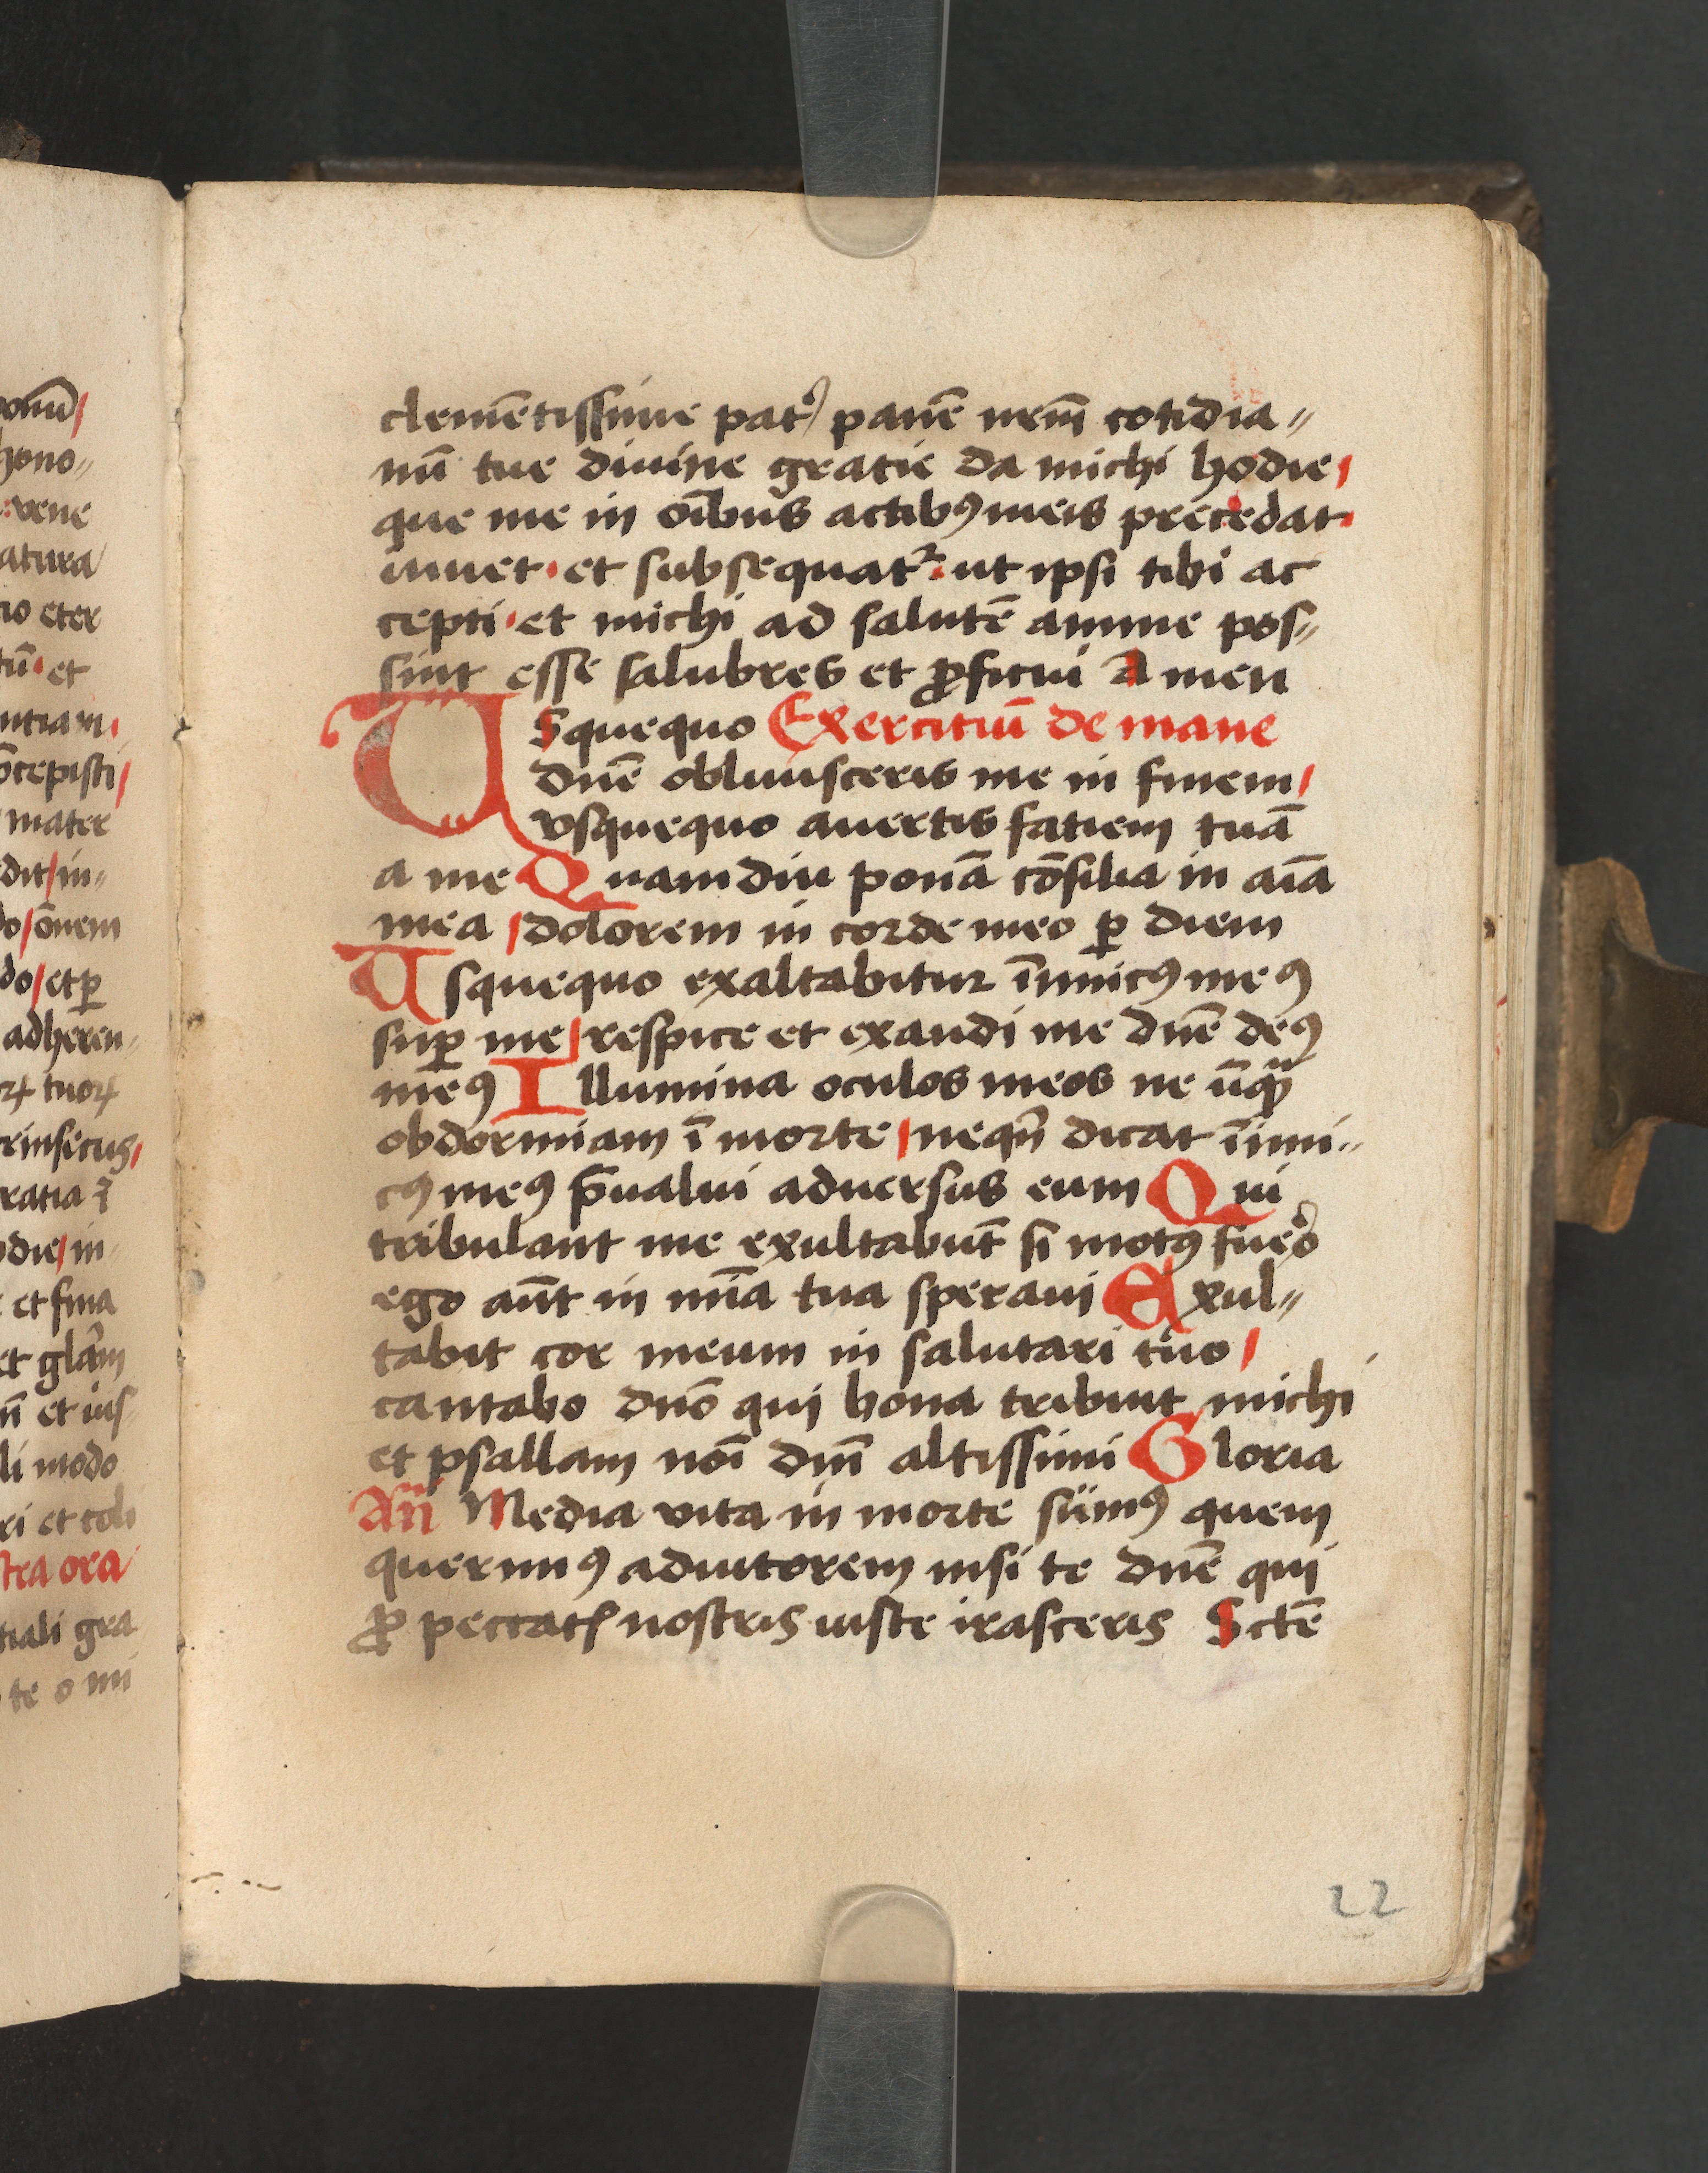 clemētissime pat᷒ panē nrm̄ cotidia⸗
nū tue diuine gratie da michi hodie/
que me in oībus actibꝰ meis precedat·
iuuet· et subsequatᷣ· ut ipsi tibi ac
cepti· et michi ad salutē anime pos⸗
sint esse salubres et ꝓficui Amen
Vsquequo Exercitiū de mane
dnē obliuisceris me in finem/
vsquequo auertis fatiem tuā
a me Quamdiu ponā cōsilia in aīa
mea / dolorem in corde meo ꝑ diem
Vsquequo exaltabitur īimicꝰ meꝰ
suꝑ me / respice et exaudi me dnē deꝰ
meꝰ Illumina oculos meos ne ūqᷓ
obdormiam ī morte / neqn̄ dicat īimi⸗
cꝰ meꝰ p̄ualui aduersus eum Qui
tribulant me exultabūt si motꝰ fuero
ego aūt in mīa tua speraui Exul⸗
tabit cor meum in salutari tuo /
cantabo dnō qui bona tribuit michi
et psallam noī dnī altissimi Gloria
An̄ Media vita in morte sumꝰ quem
querimꝰ adiutorem nisi te dnē qui
ꝓ peccatꝭ nostris iuste irasceris Sctē
22
onū/
hono⸗
vene
atura
io eter
tū· et
ntiam·
ōcepisti/
mater
dit/in⸗
do/ ōnem
do/ et ꝑ
adheren⸗
orꝝ tuorꝝ
rinsecus/
ratia ī
odie/in
et firma
et glām
et ius⸗
li modo
ri et coli
stra ora
tiali gra
te o mi